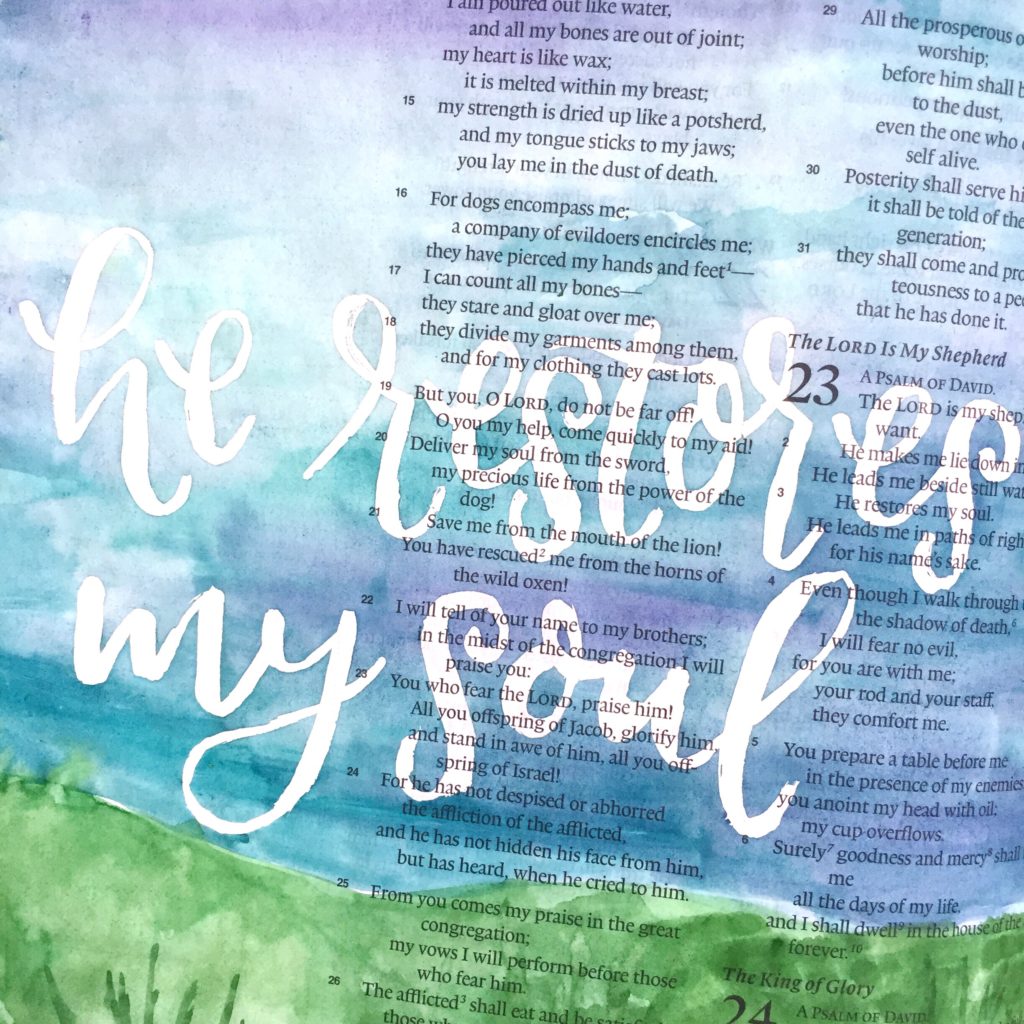 he restores
my soul
I am poured out like water,
and all my bones are out of joint;
my heart is like wax;
it is melted within my breast;
15 my strength is dried up like a potsherd,
and my tongue sticks to my jaws;
you lay me in the dust of death.
16 For dogs encompass me;
a company of evildoers encircles me;
they have pierced my hands and feet¹—
17 I can count all my bones—
they stare and gloat over me;
18 they divide my garments among them,
and for my clothing they cast lots.
19 But you, O LORD, do not be far off!
O you my help, come quickly to my aid!
20 Deliver my soul from the sword,
my precious life from the power of the
dog!
21 Save me from the mouth of the lion!
You have rescued² me from the horns of
the wild oxen!
22 I will tell of your name to my brothers;
in the midst of the congregation I will
praise you:
23 You who fear the LORD, praise him!
All you offspring of Jacob, glorify him,
and stand in awe of him, all you off-
spring of Israel!
24 For he has not despised or abhorred
the affliction of the afflicted,
and he has not hidden his face from him,
but has heard, when he cried to him.
25 From you comes my praise in the great
congregation;
my vows I will perform before those
who fear him.
26 The afflicted³ shall eat and be
those
29 All the prosperous
worship;
before him shall
to the dust,
even the one who
self alive.
30 Posterity shall serve
it shall be told of the
generation;
31 they shall come and
teousness to a
that he has done it.
The LORD Is My Shepherd
23 A PSALM OF DAVID.
The LORD is my
want.
2 He makes me lie down
He leads me beside still
3 He restores my soul.
He leads me in paths of
for his name's sake.
4 Even though I walk through
the shadow of death,⁶
I will fear no evil,
for you are with me;
your rod and your staff,
they comfort me.
5 You prepare a table before me
in the presence of my enemies
you anoint my head with oil;
my cup overflows.
6 Surely⁷ goodness and mercy⁸ shall
me
all the days of my life,
and I shall dwell⁹ in the house of the
forever.¹⁰
The King of Glory
24 A PSALM OF DAVID.